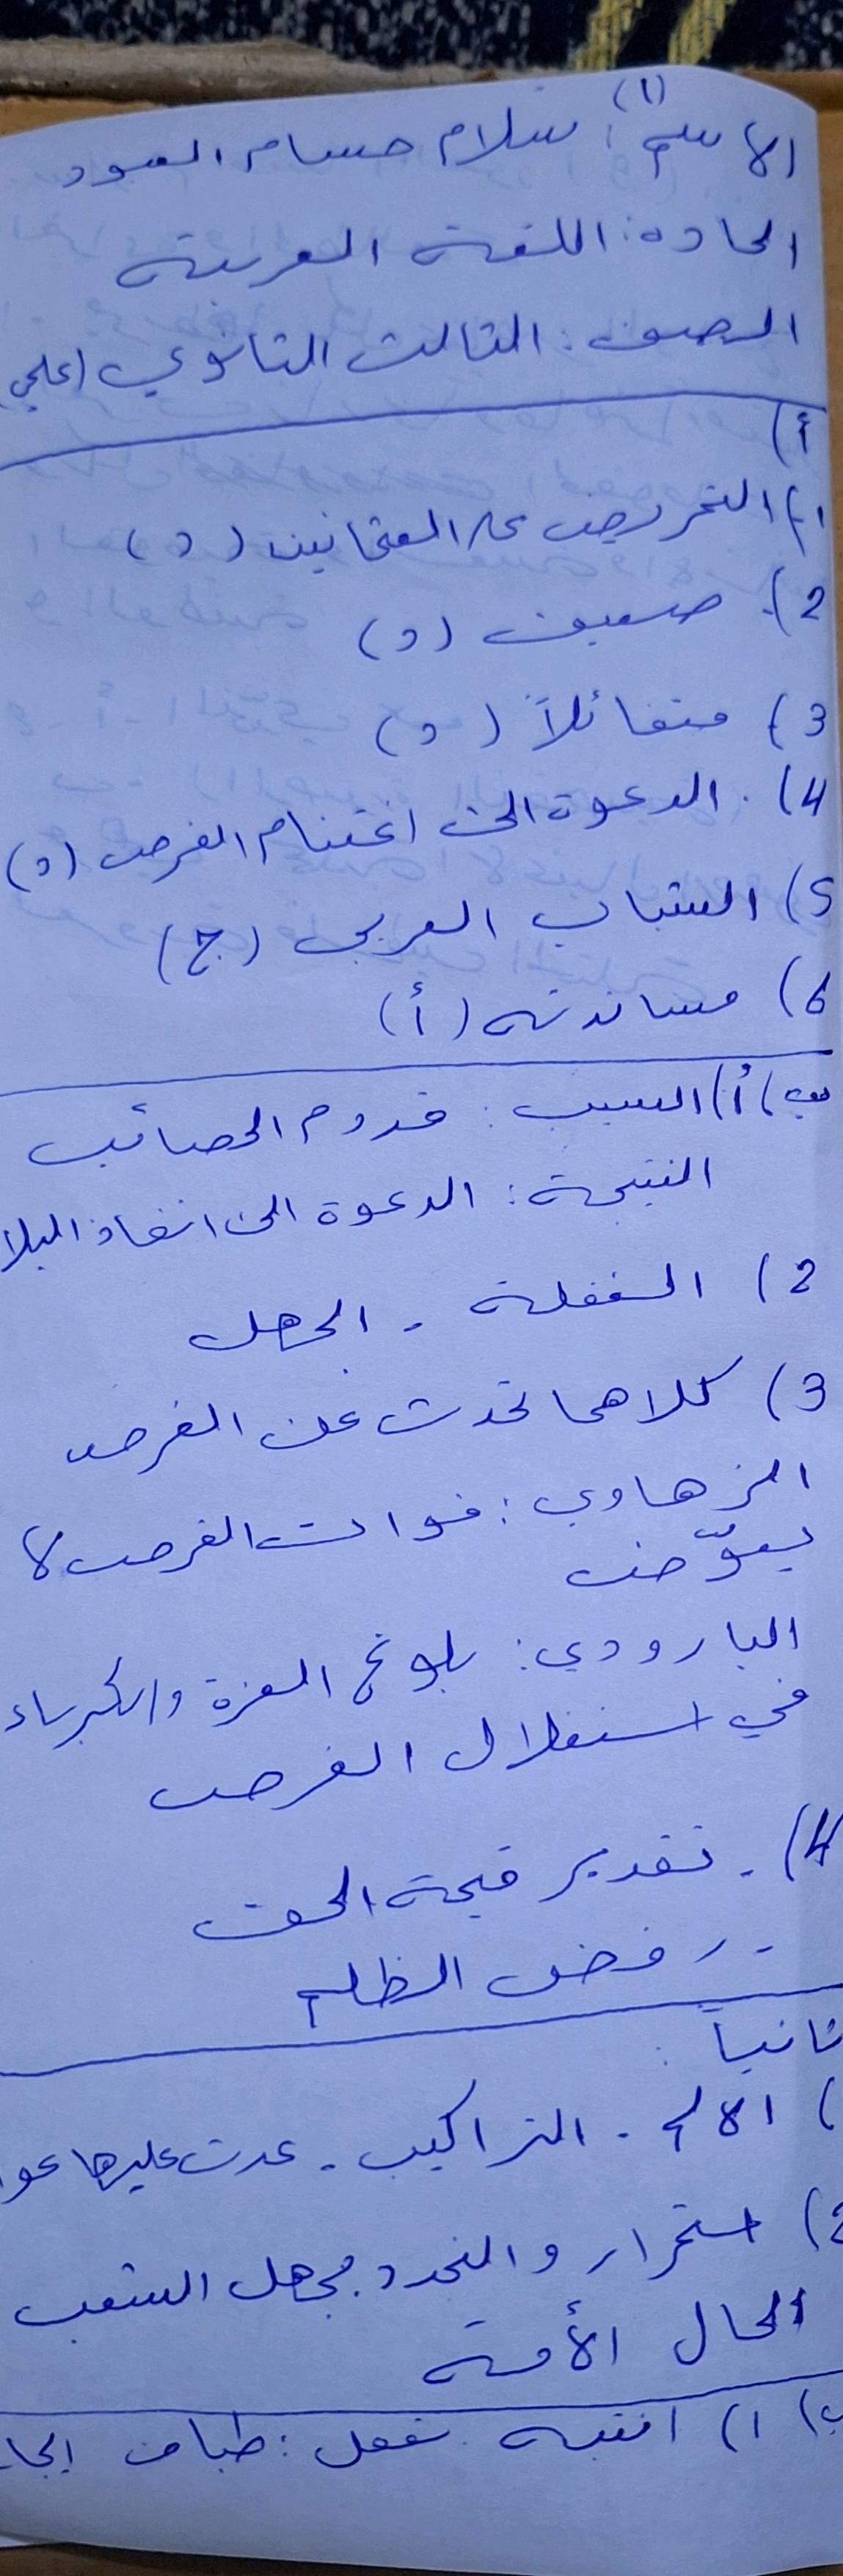 (1)
الاسم: سلام حسام العبود
المادة: اللغة العربية
الصف: الثالث الثانوي (علمي)
أ)
1) التحريض على العثمانيين (د)
2). ضعيف (د)
3) متفائلاً (د)
4). الدعوة الى اغتنام الفرص (د)
5) الشباب العربي (ج)
6) مساندته (أ)
ب) أ) السبب: قدوم المصائب
النتيجة: الدعوة الى انقاذ البلا
2) الغفلة - الجهل
3) كلاهما تحدث عن الفرص
الزهاوي: فوات الفرص لا
يعوّض
البارودي: بلوغ العزة والكبرياء
في استغلال الفرص
4) - تقدير قيمة الحق
- رفض الظلم
ثانياً:
) الألم - التراكيب - عدت عليها عوا
2) استمرار والتجدد بجهل الشعب
لحال الأمة
ب) 1) انتبه تغفل: طباق إيجا